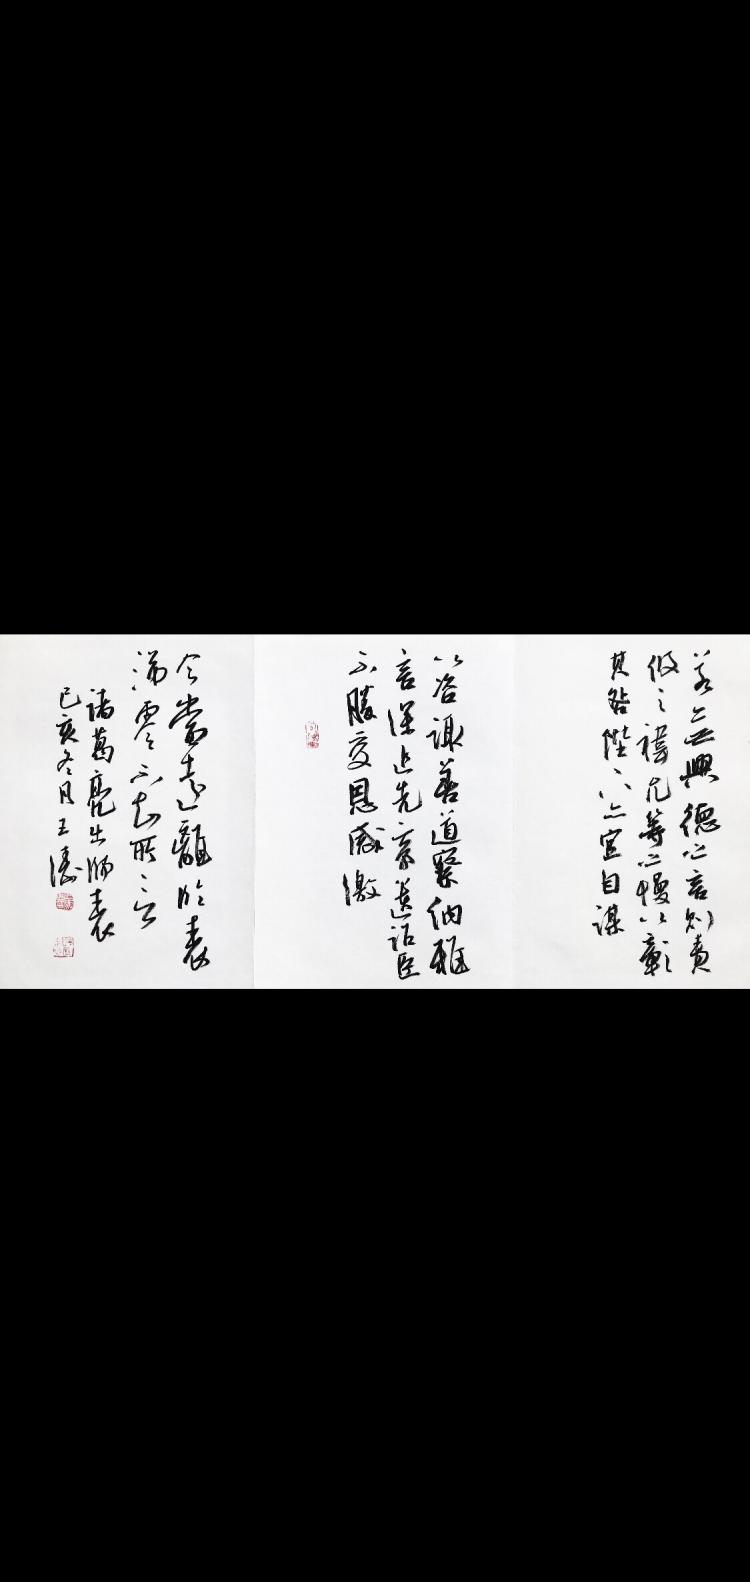 若無興德之言則責
攸之禕允等之慢以彰
其咎陛下亦宜自謀
以咨諏善道察納雅
言深追先帝遺詔臣
不勝受恩感激
今當遠離臨表
涕零不知所云
諸葛亮出師表
己亥冬月王濤